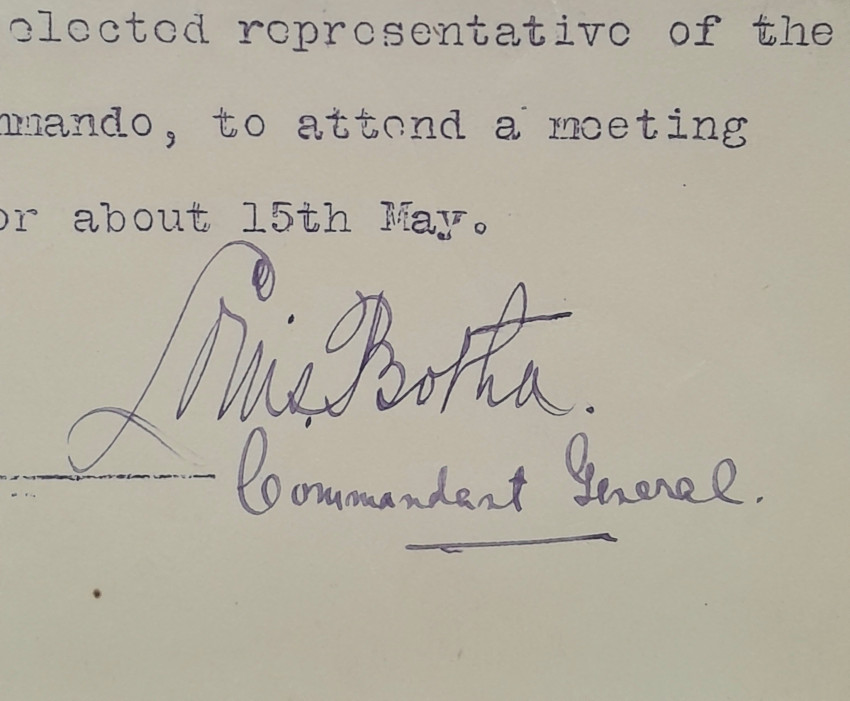 elected representative of the
mmando, to attend a meeting
or about 15th May.
Louis Botha.
Commandant General.